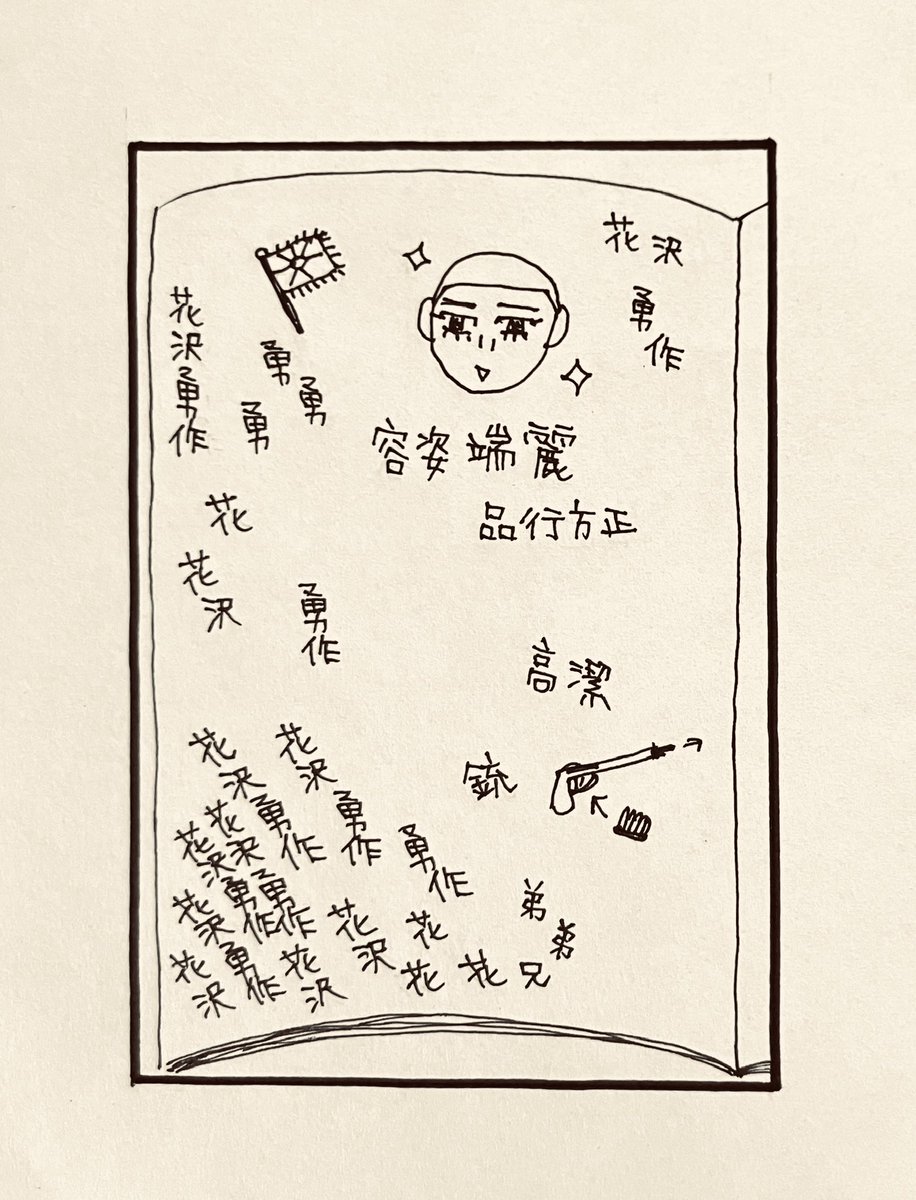 花沢
勇作
花沢勇作
勇
勇
勇
容姿端麗
品行方正
花
花沢
勇作
高潔
銃
花沢勇作
花沢勇作
勇作
花沢勇作
花沢勇作
花沢勇作
花沢
花沢
花沢
花
花
花
弟
弟
兄